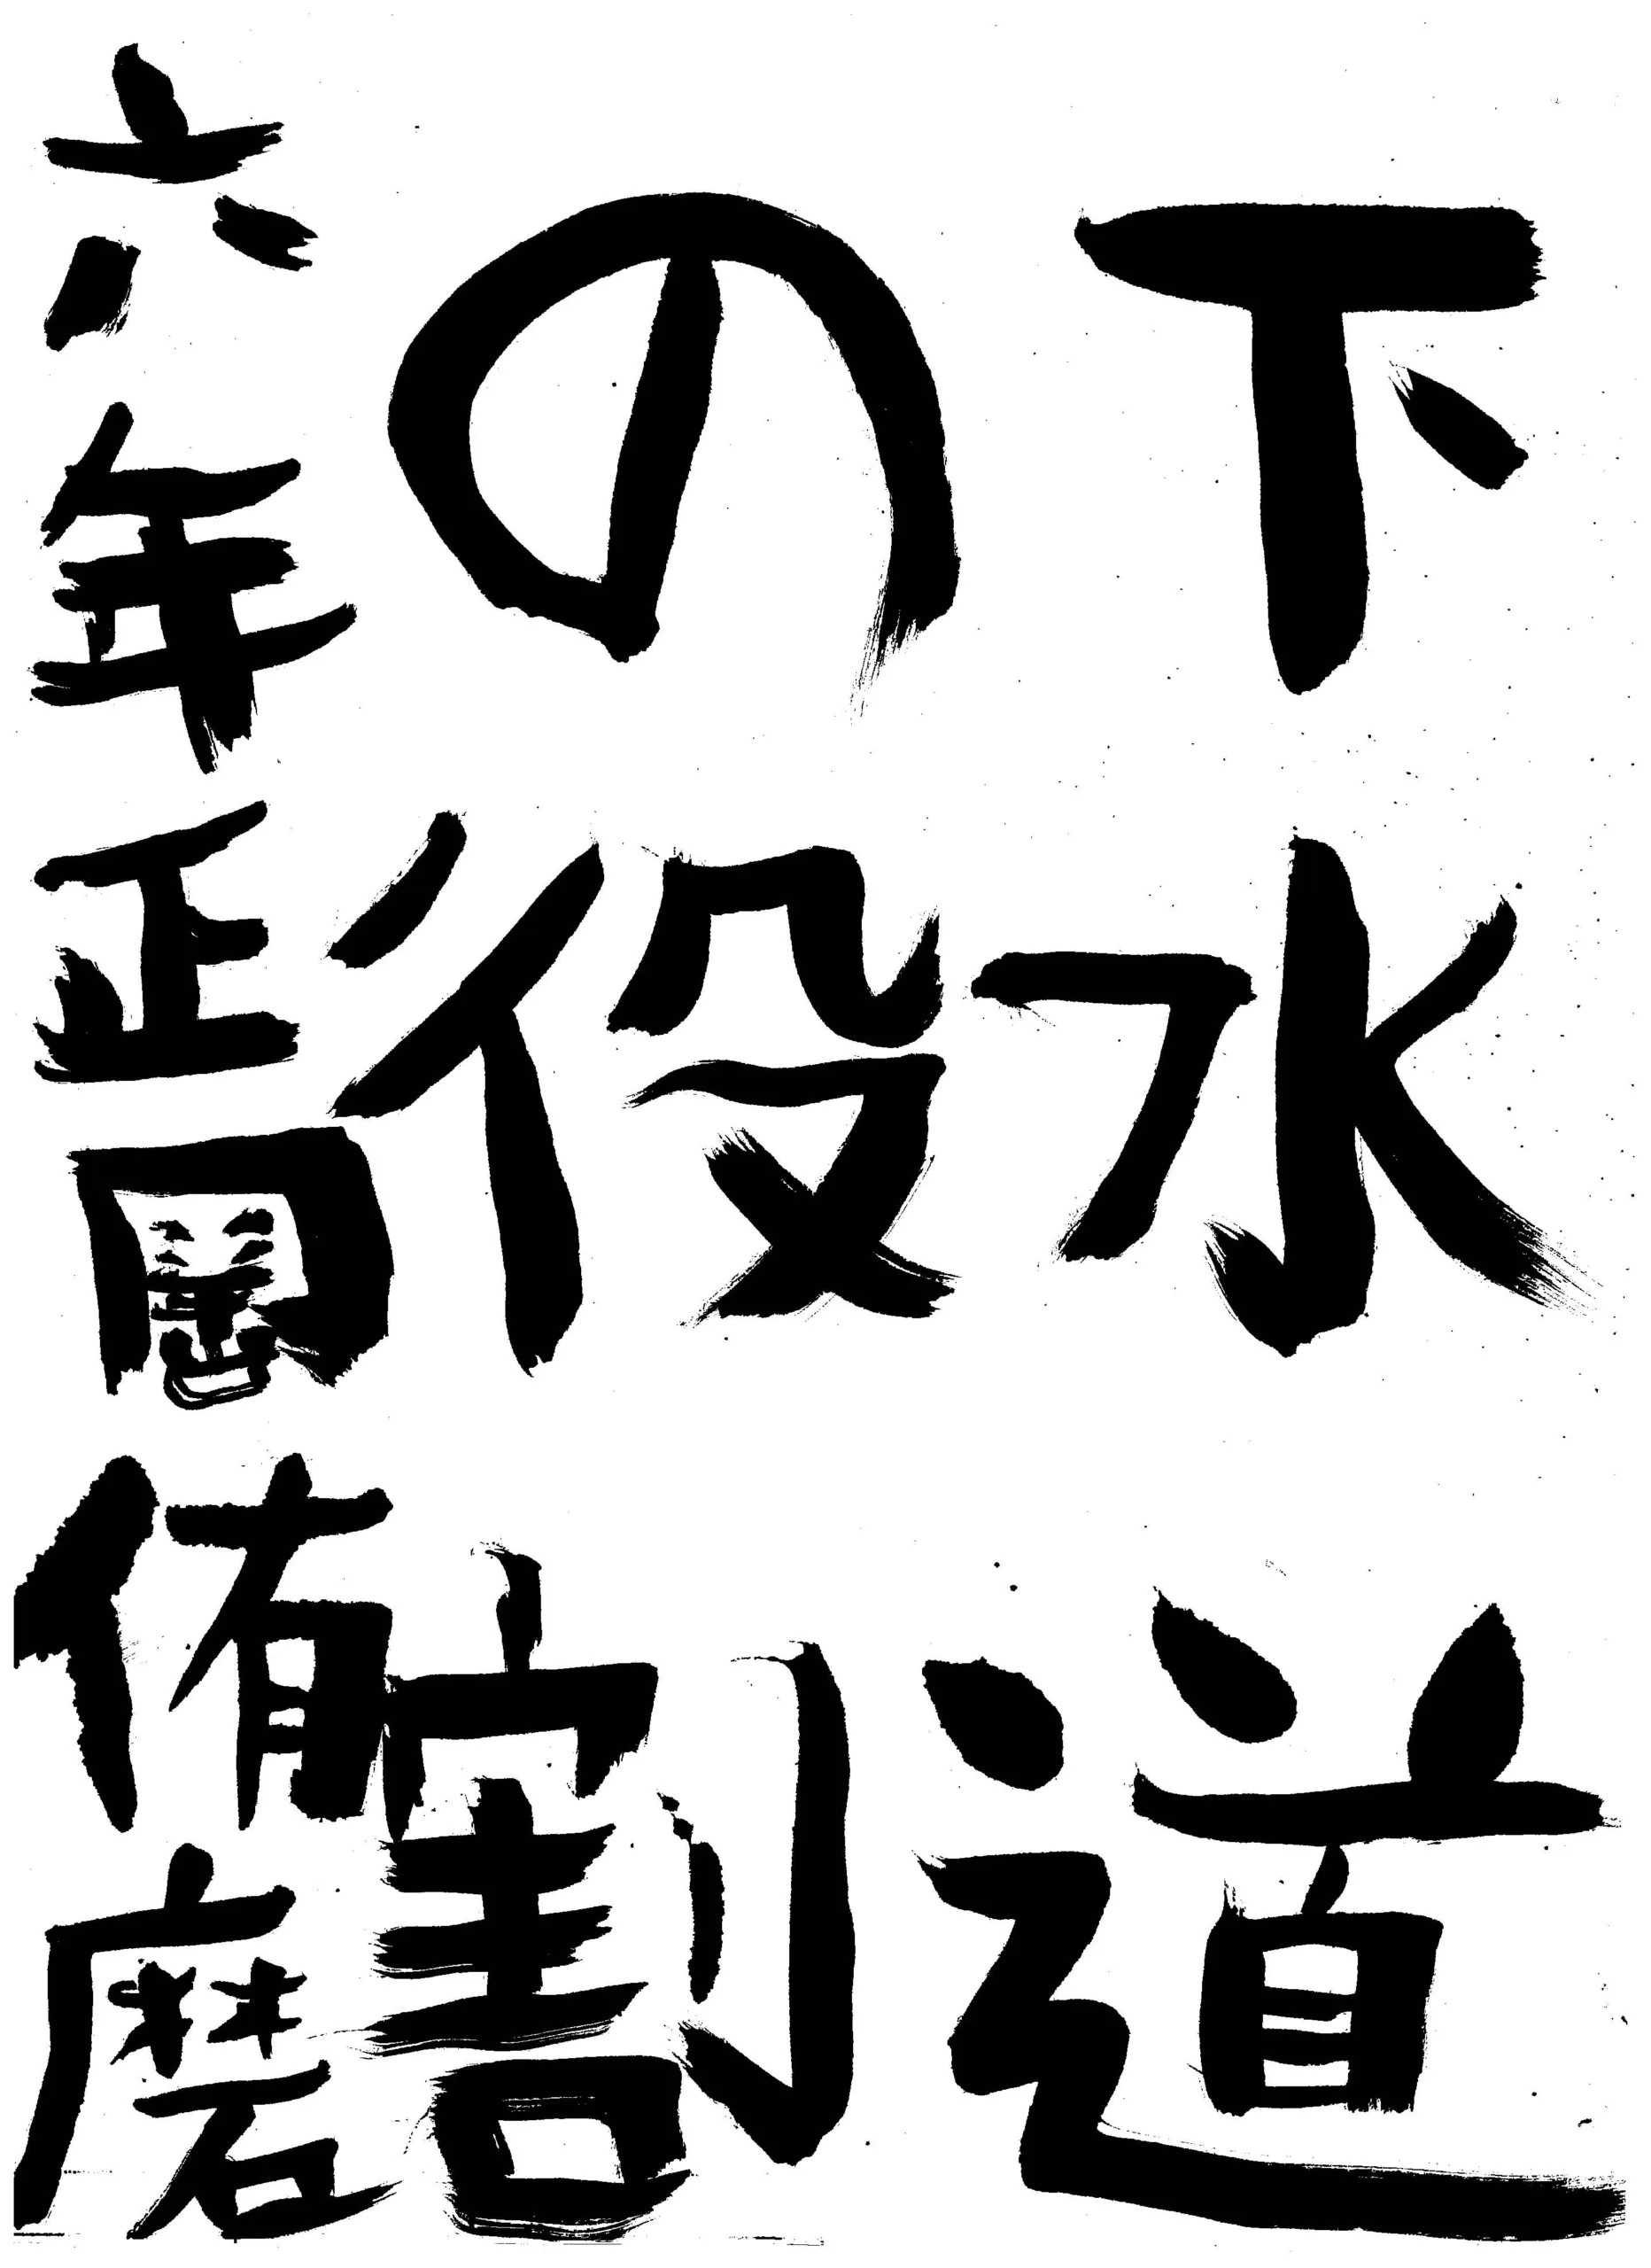 下水道
の役割
六年正岡侑磨